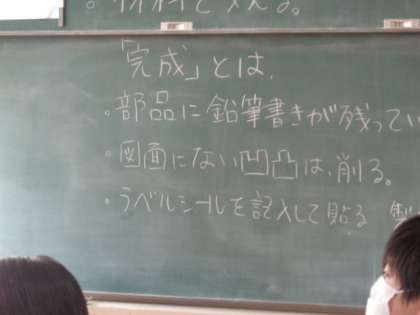 「完成」とは、
。部品に鉛筆書きが残ってい
。図面にない凹凸は、削る。
・ラベルシールを記入して貼る 製